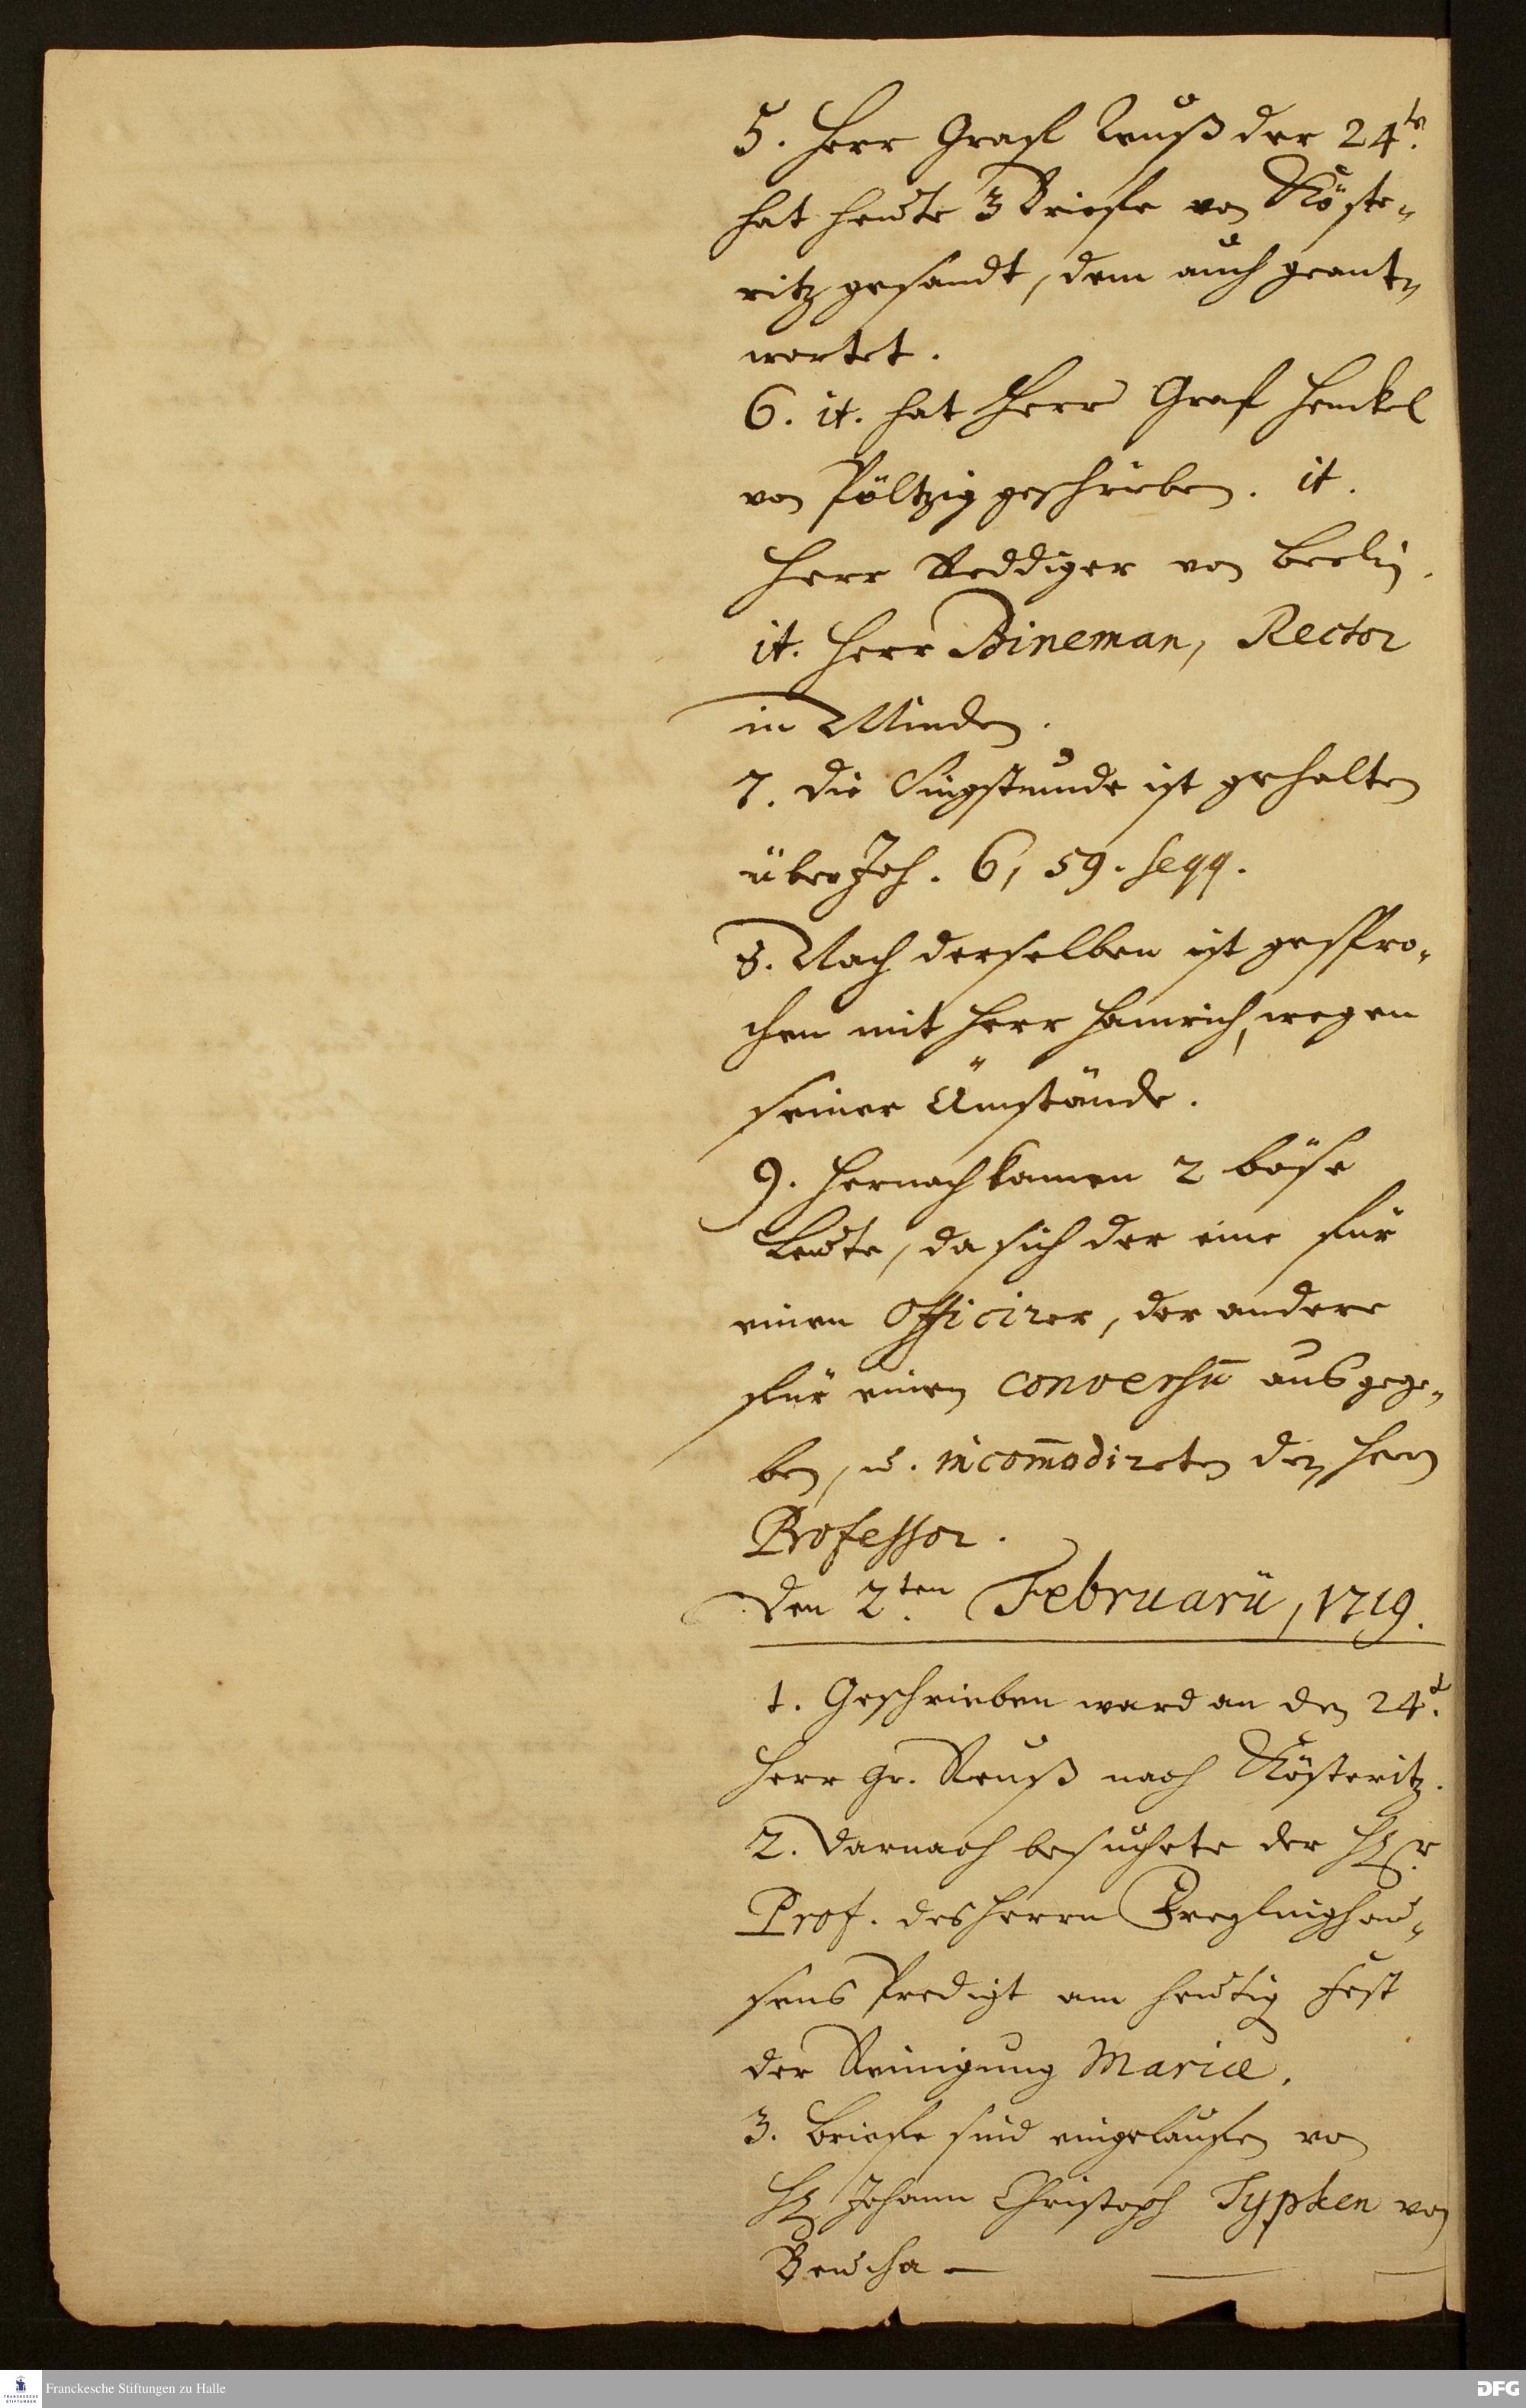 5. Herr Graff Reuß der 24te.
hat heute 3 Briefe von Köste-
ritz gesandt, dem auch geant-
wortet.
6. it. hat Herr Graf Henckel
von Pöltzig geschrieben. it.
Herr Reddiger von Berlin.
it. Herr Bineman, Rector
in Minden.
7. die Singstunde ist gehalten
über Joh. 6, 59. seqq.
8. Nach derselben ist gespro-
chen mit Herr Hainrich, wegen
seiner Umstände.
9. Hernach kamen 2 böse
Leute, da sich der eine für
einen Officirer, der andere
für einen conversū ausgege-
ben, u. incom̄odirten den Herrn
Professor.
den 2.ten Februarii, 1719.
1. Geschrieben ward an den 24.t
Herr Gr. Reuß nach Kösteritz.
2. Darnach besuchete der H. Er.
Prof. des Herrn Freylinghau-
sens Predigt am heutig Fest
der Reinigung Mariæ.
3. Briefe sind eingelaufen von
H. Johann Christoph Typken von
Beucha —
Franckesche Stiftungen zu Halle
DFG